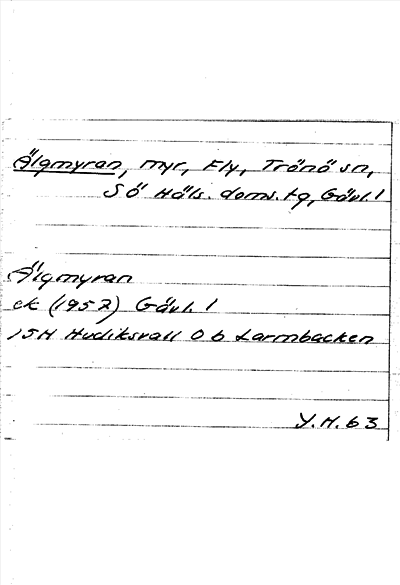 Älgmyran, myr, Fly, Trönö sn,
Sö Häls. doms.tg, Gävl. l
Älgmyran
ek (1957) Gävl. l
15H Hudiksvall 0 b Larmbacken
Y. H. 63